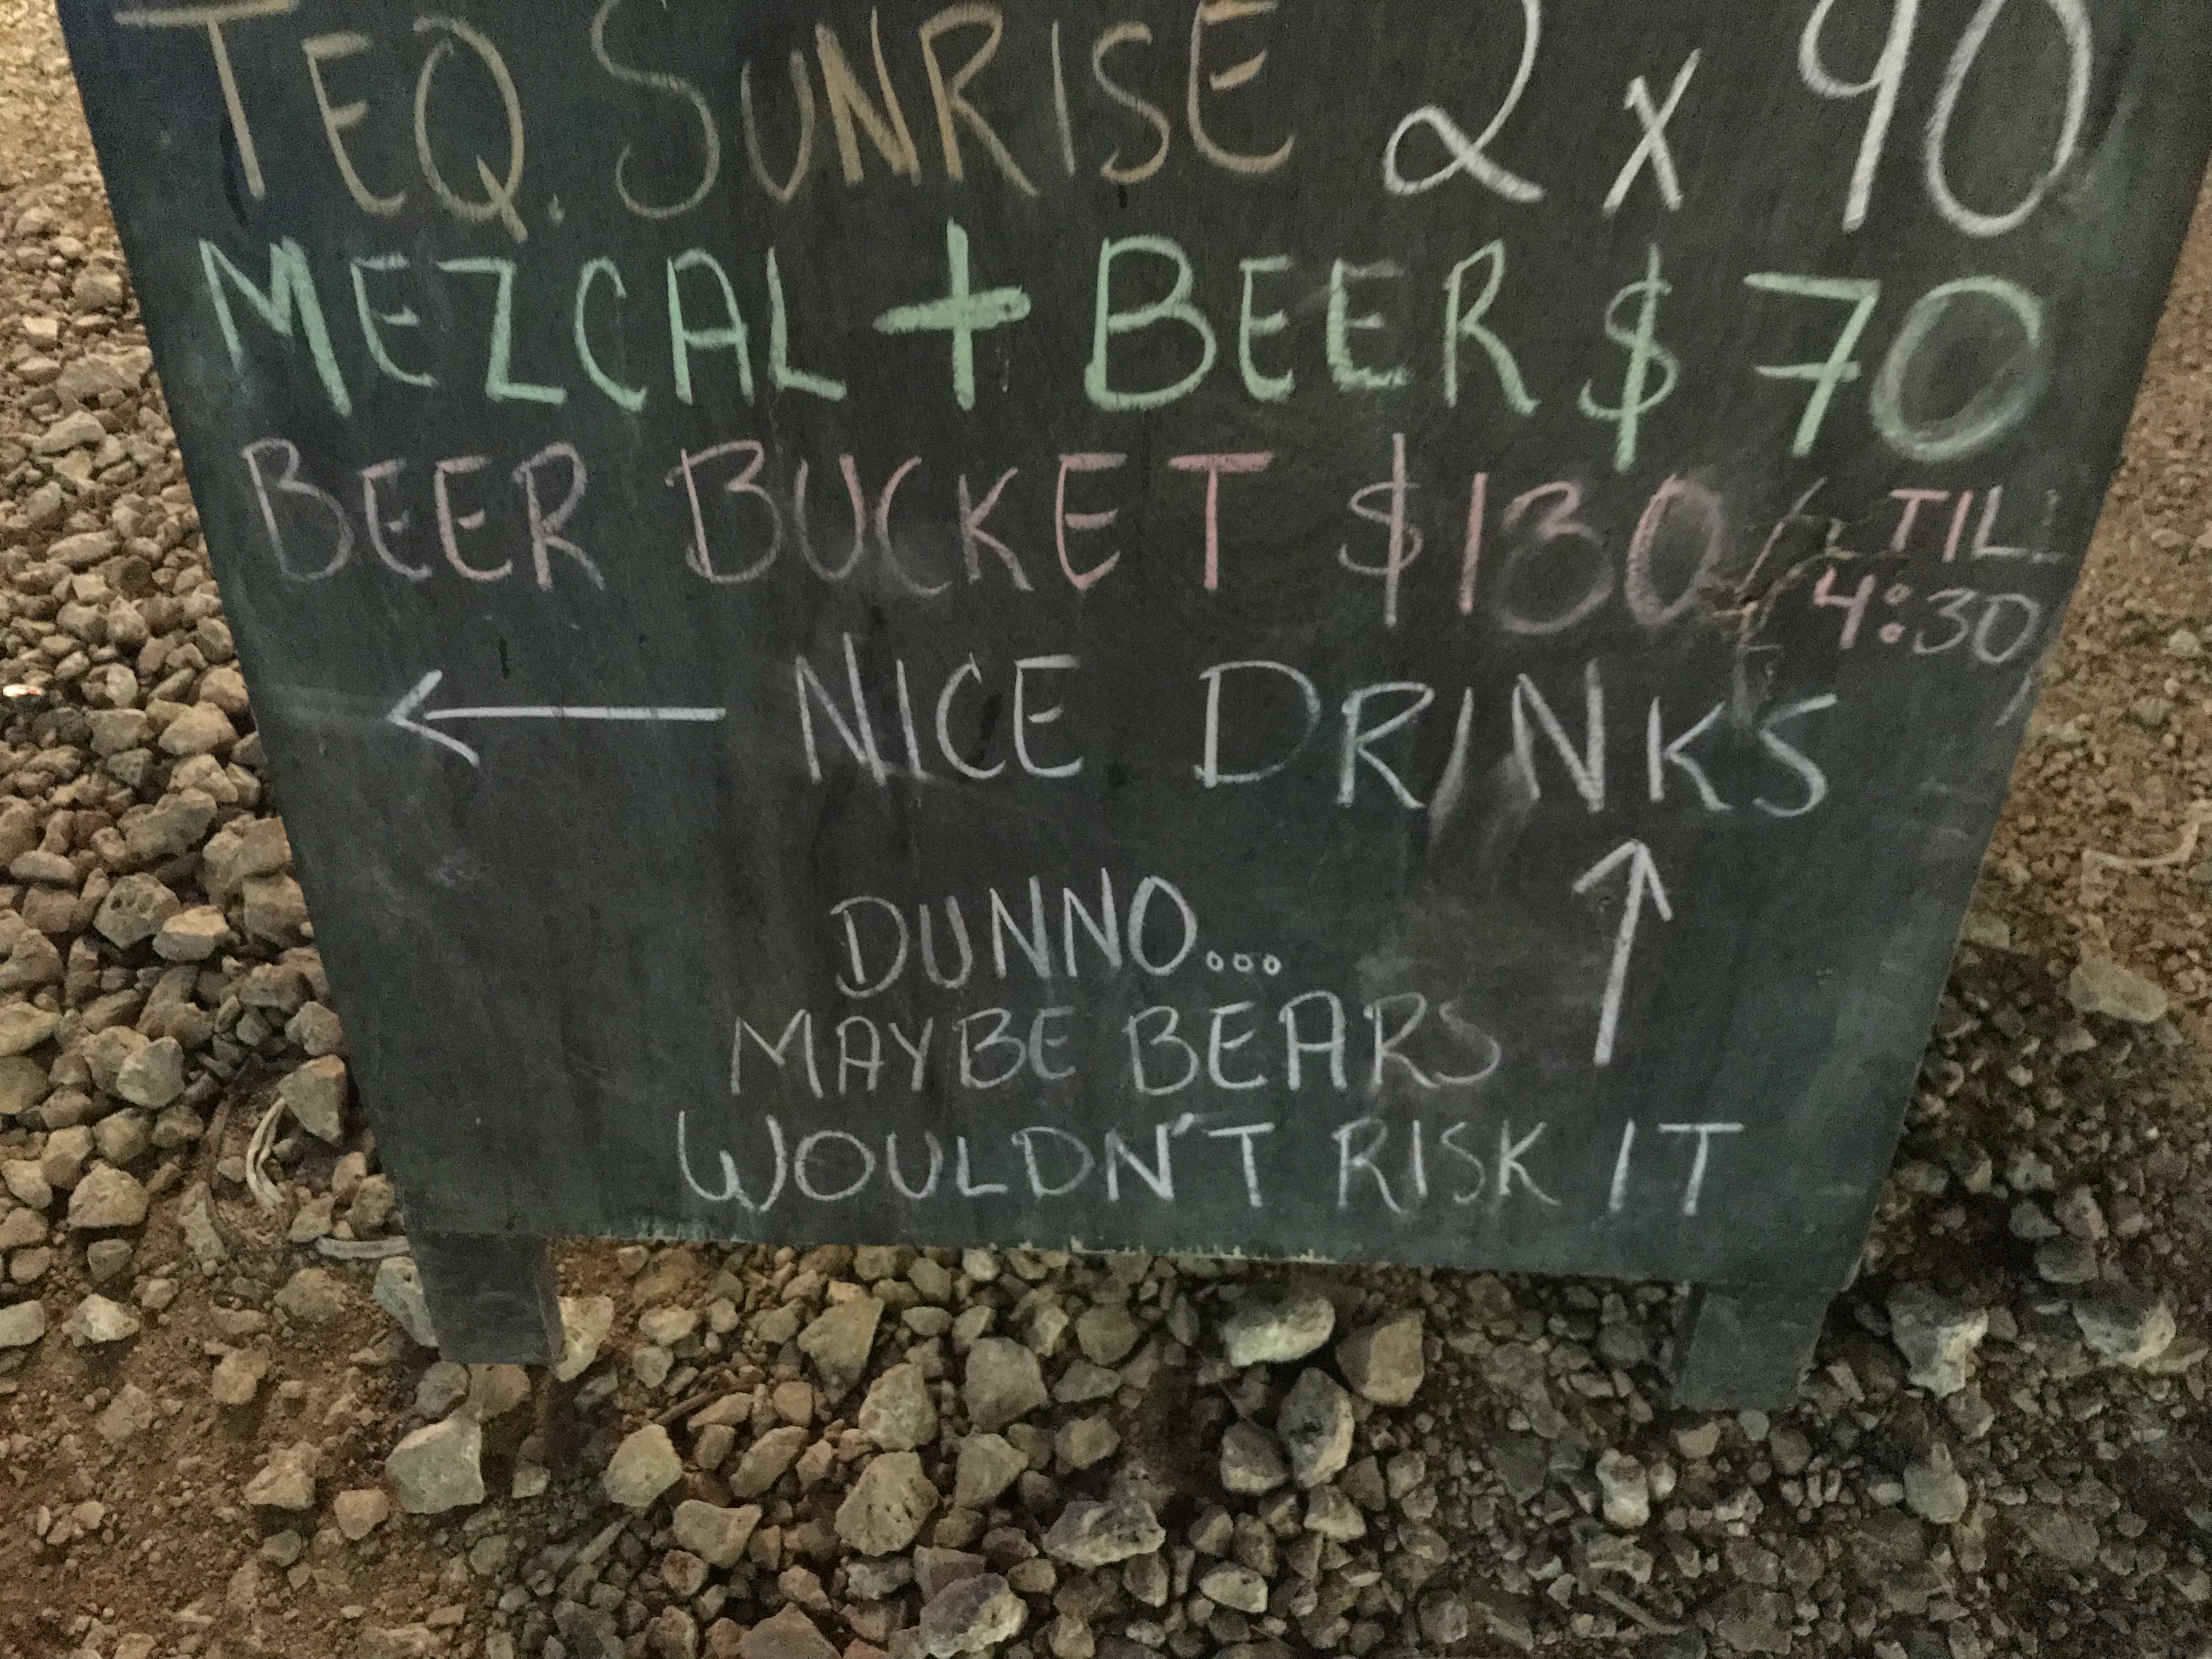 TEQ. SUNRISE 2 x 90
MEZCAL + BEER $70
BEER BUCKET $130 / TIL
4:30
← NICE DRINKS
↑
DUNNO...
MAYBE BEARS
WOULDN'T RISK IT